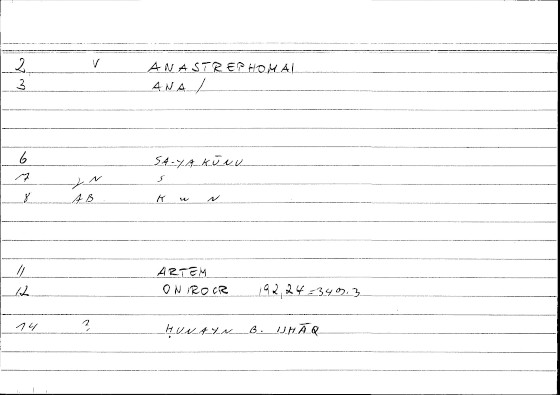 2 V ANASTREPHOMAI
3 ANA /
6 SA-YAKŪNU
7 yN S
8 AB K w N
11 ARTEM
12 ONIROCR 192,24=349.3
14 ? ḤUNAYN B. ISḤĀQ